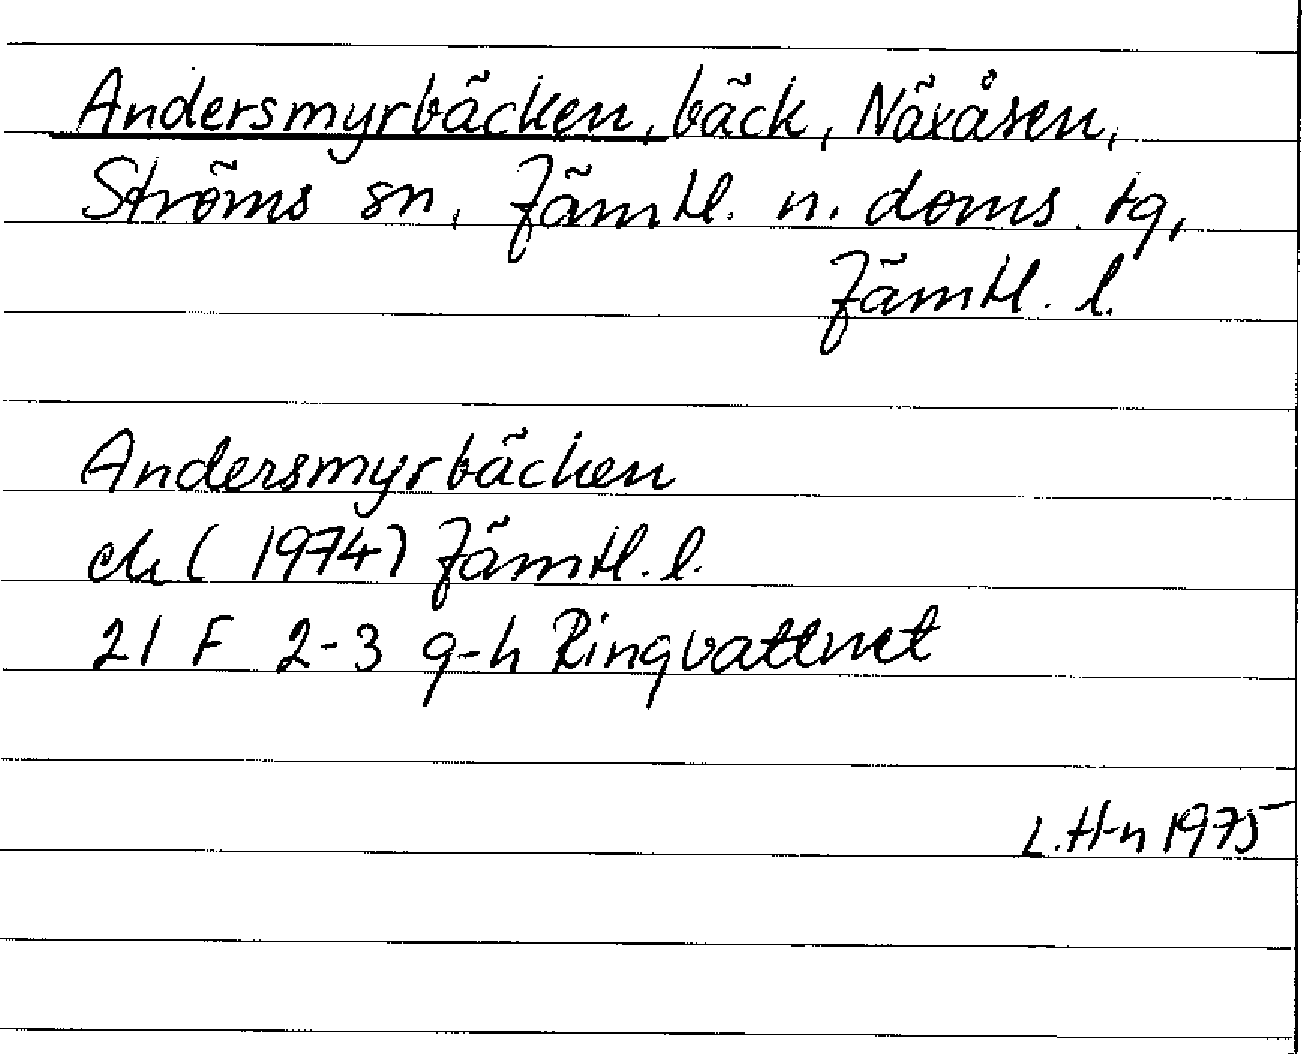 Andersmyrbäcken, bäck, Näxåsen,
Ströms sn, Jämtl. n. doms. tg,
Jämtl. l.
Andersmyrbäcken
ek (1974) Jämtl. l.
21 F 2-3 g-h Ringvattnet
L. H-n 1975